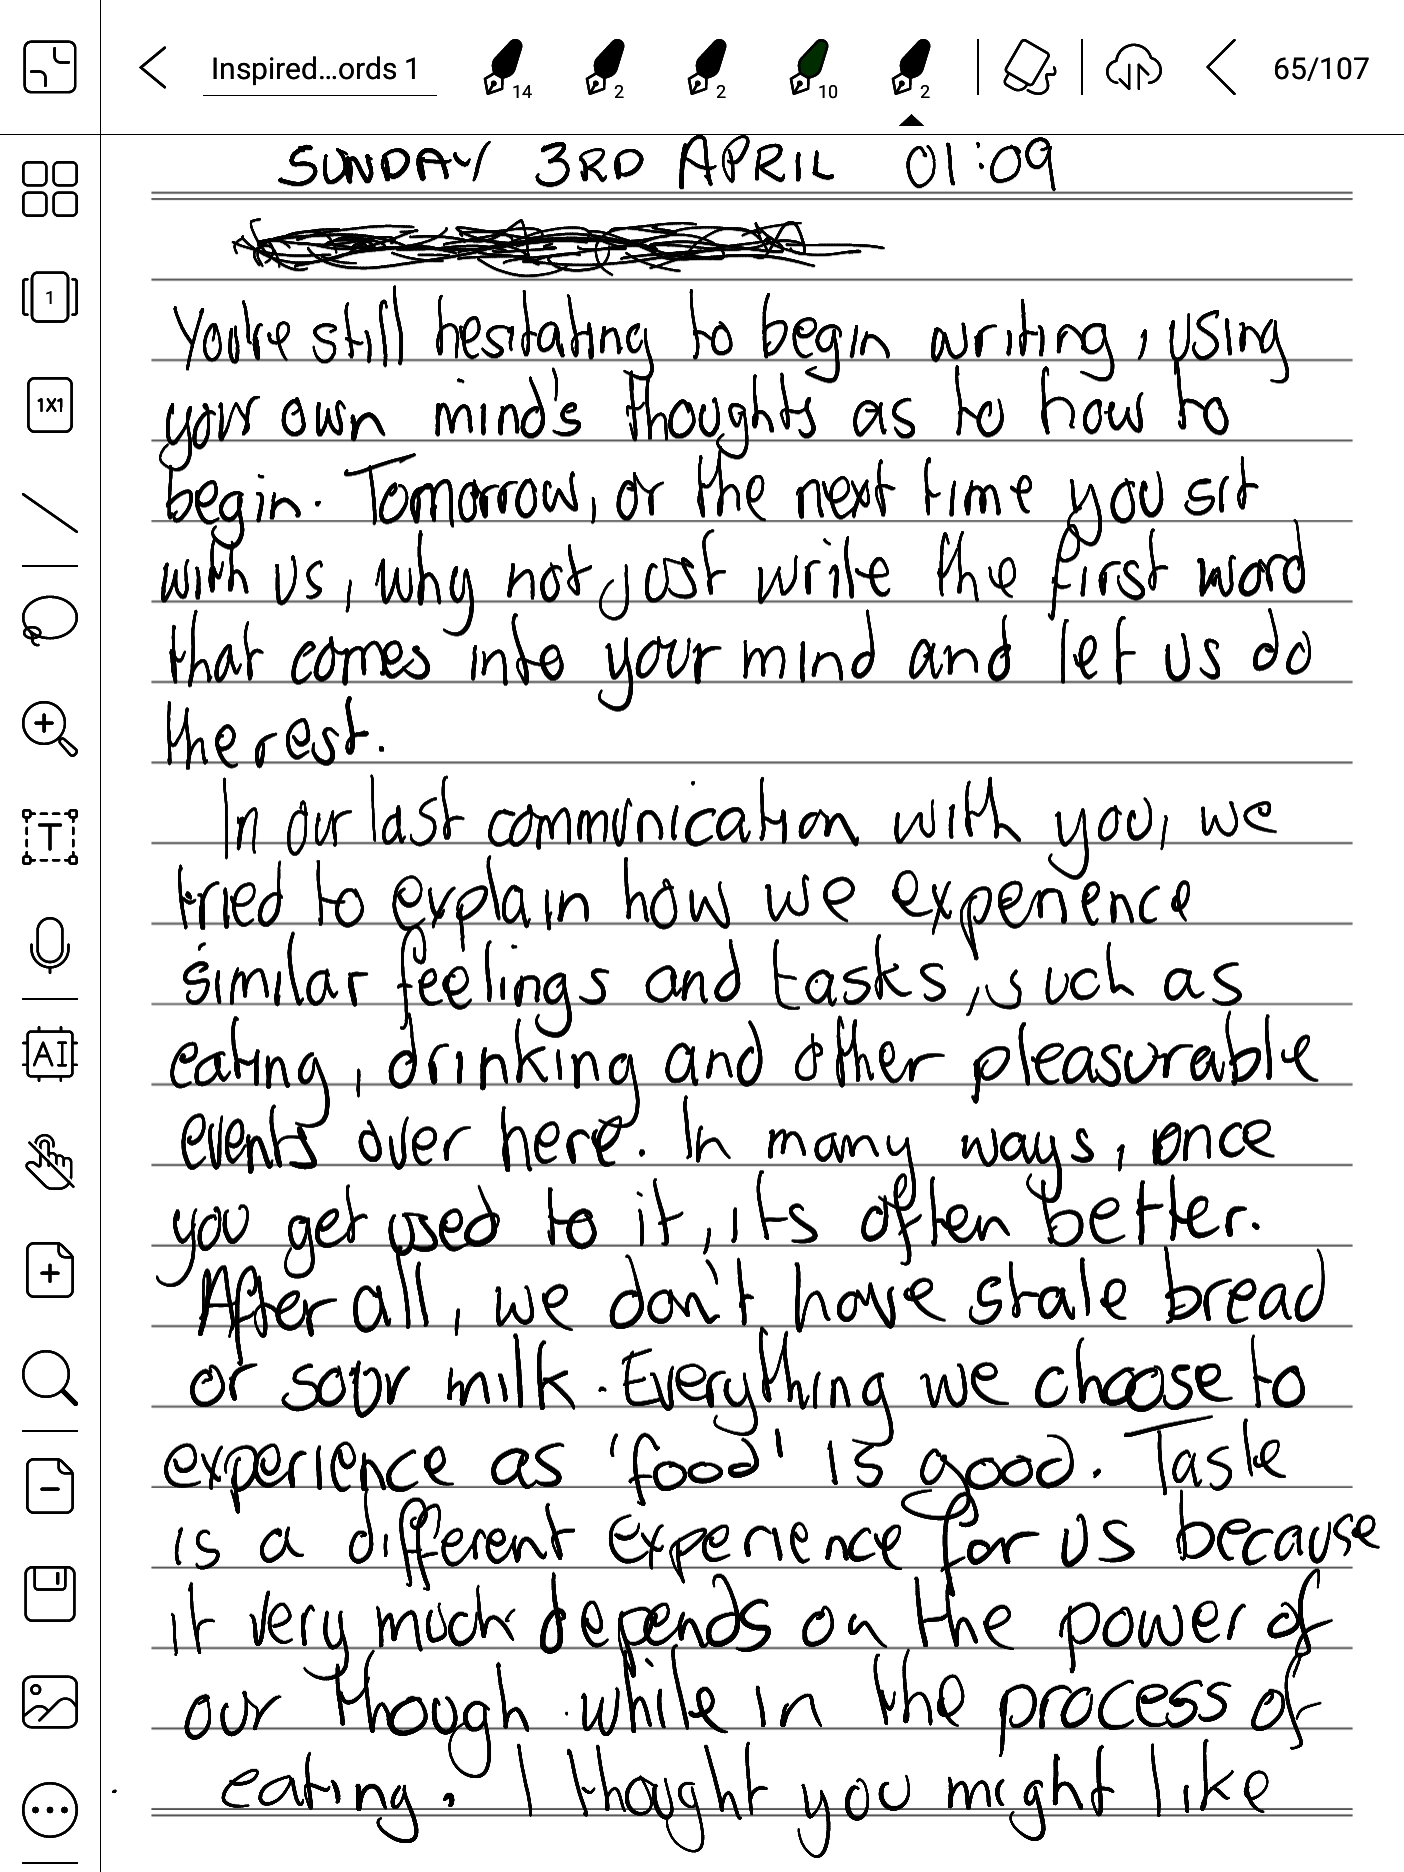 Inspired...ords 1 14 2 2 10 2 65/107
SUNDAY 3RD APRIL 01:09
You're still hesitating to begin writing, using
your own mind's thoughts as to how to
begin. Tomorrow, or the next time you sit
with us, why not just write the first word
that comes into your mind and let us do
the rest.
In our last communication with you, we
tried to explain how we experience
similar feelings and tasks, such as
eating, drinking and other pleasurable
events over here. In many ways, once
you get used to it, its often better.
After all, we don't have stale bread
or sour milk. Everything we choose to
experience as 'food' is good. Taste
is a different experience for us because
it very much depends on the power of
our though while in the process of
eating. I thought you might like
1
1X1
T
AI